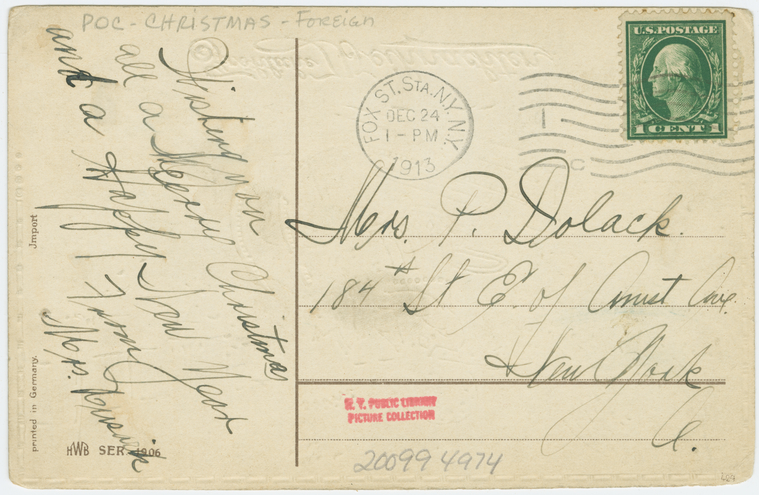 POC - CHRISTMAS - Foreign
Fröhliche Weihnachten
U.S. POSTAGE
1 CENT 1
FOX ST. STA. N.Y. N.Y.
DEC 24
1 - PM
1913
Wishing you
all a Merrie Christmas
and a Happy New Year
From
Mrs.
Mrs. P. Dolack.
184th St E. of Ave.
New York
Import
printed in Germany.
HWB SER. 1906
N. Y. PUBLIC LIBRARY
PICTURE COLLECTION
200994974